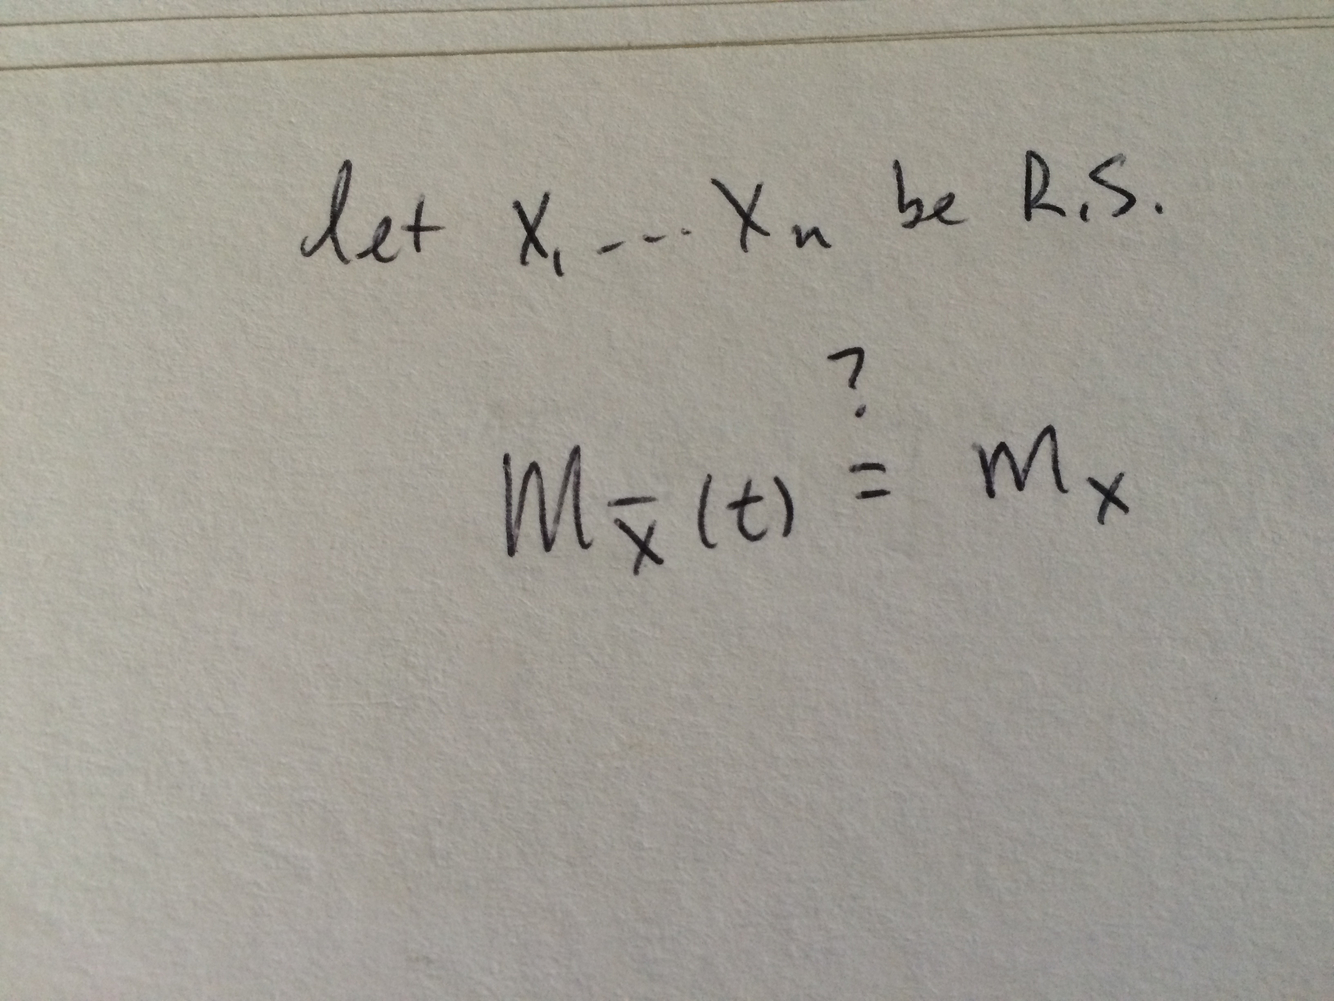 let X₁ ---- Xₙ be R.S.
?
M_X̄(t) = M_X